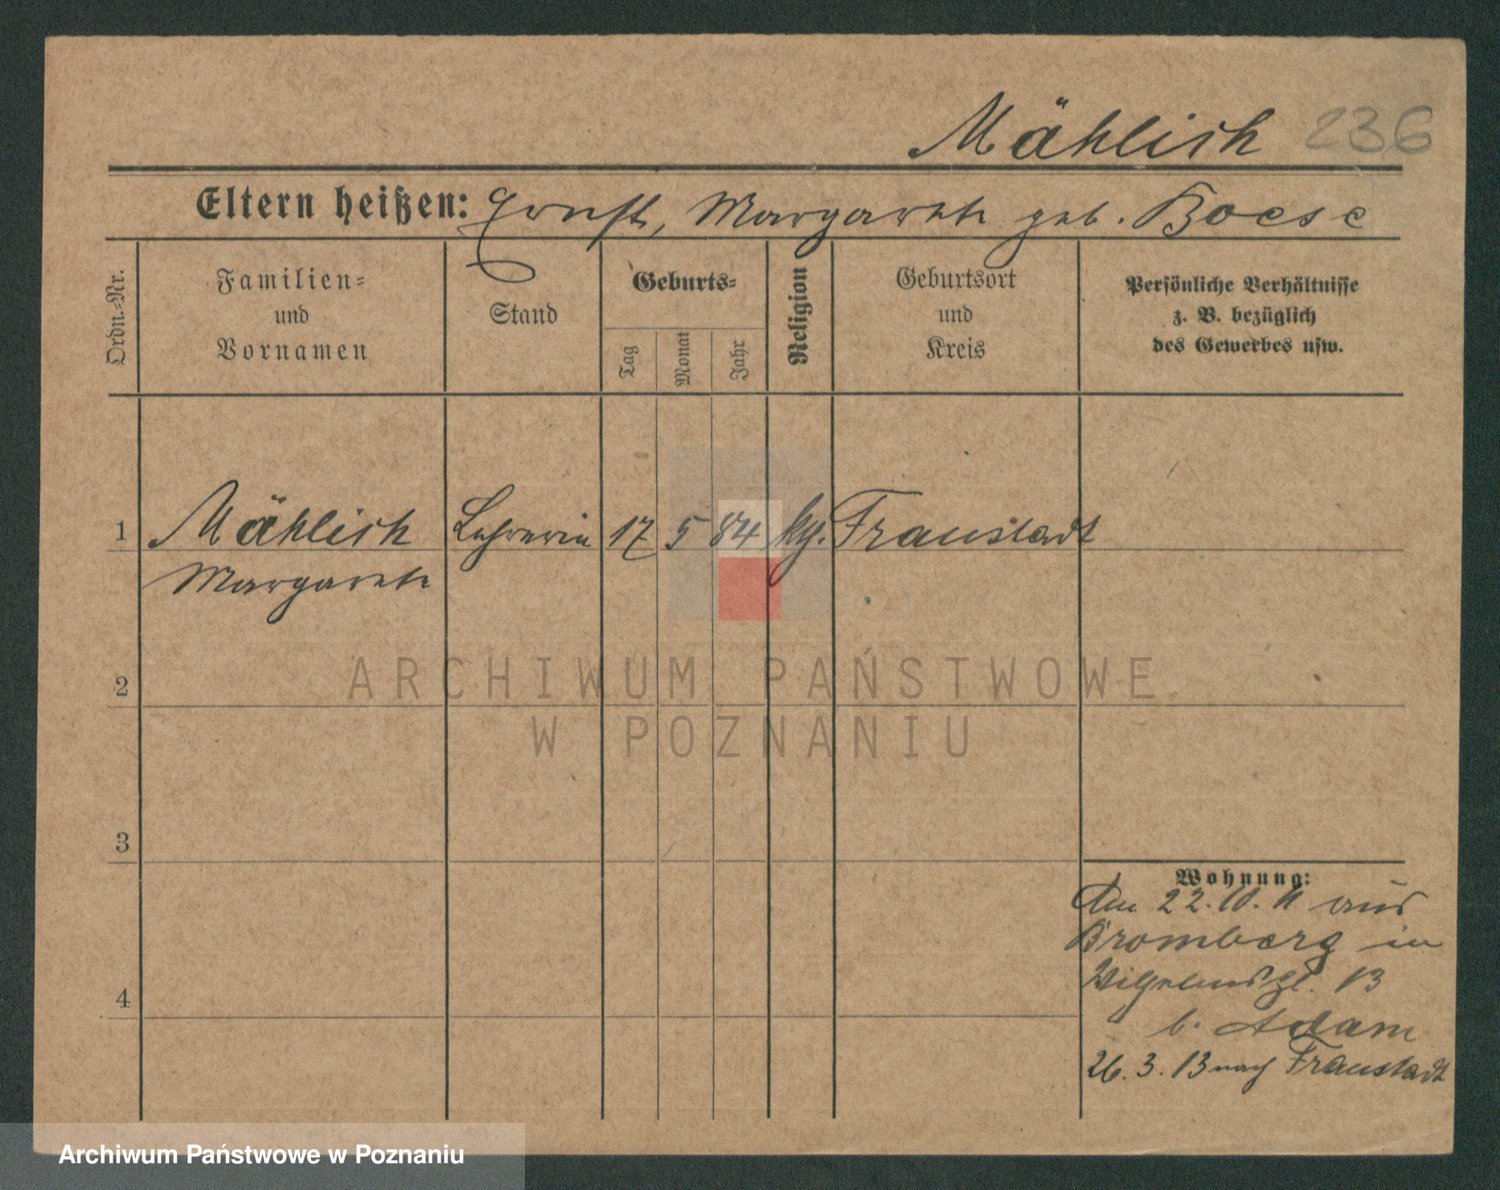 Mählich 236
Eltern heißen: Ernst, Margarete geb. Boese
Ordn.-Nr.
Familien-
und
Vornamen
Stand
Geburts-
Tag
Monat
Jahr
Religion
Geburtsort
und
Kreis
Persönliche Verhältnisse
z. B. bezüglich
des Gewerbes usw.
1 Mählich Lehrerin 17 5 84 kg. Fraustadt
Margarete
2
3
4
Wohnung:
Am 22.10.11 aus
Bromberg in
13
b. Adam
26.3.13 nach Fraustadt
ARCHIWUM PAŃSTWOWE
W POZNANIU
Archiwum Państwowe w Poznaniu